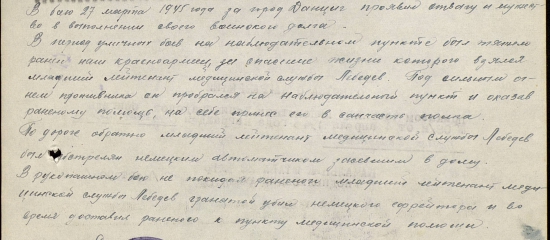 В бою 27 марта 1945 года за город Данциг проявил отвагу и мужест-
во в выполнении своего воинского долга.
В период уличных боев на наблюдательном пункте был тяжело
ранен наш красноармеец за спасение жизни которого взялся
младший лейтенант медицинской службы Лебедев. Под сильным ог-
нем противника он пробрался на наблюдательный пункт и оказав
раненому помощь, на себе понес его в санчасть полка.
По дороге обратно младший лейтенант медицинской службы Лебедев
был обстрелян немецким автоматчиком засевшим в дому.
В рукопашном бою не покидая раненого младший лейтенант меди-
цинской службы Лебедев гранатой убил немецкого ефрейтора и во
время доставил раненого к пункту медицинской помощи.